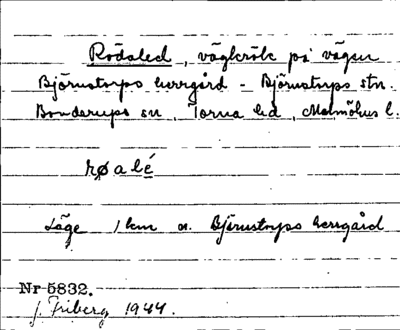 Rödaled, vägkrök på vägen
Björnstorps herrgård - Björnstorps stn.
Bonderups sn, Torna hd, Malmöhus l.
røalé
Läge 1 km n. Björnstorps herrgård
Nr 5832.
J. Friberg 1944.